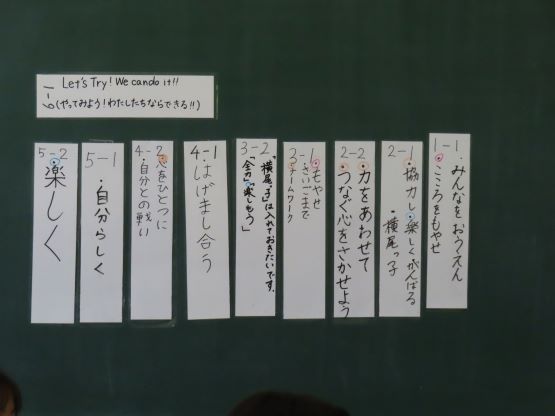 6-1
Let's Try! We can do it!!
(やってみよう！わたしたちならできる!!)
1-1
・みんなをおうえん
・こころをもやせ
2-1
・協力し楽しくがんばる
・横尾っ子
2-2
・力をあわせて
・つなぐ心をさかせよう
3-1
・もやせ
・さいごまで
・チームワーク
3-2
・「横尾っ子」は入れておきたいです。
「全力」「楽しもう」
4-1
・はげまし合う
4-2
・心をひとつに
・自分との戦い
5-1
・自分らしく
5-2
・楽しく